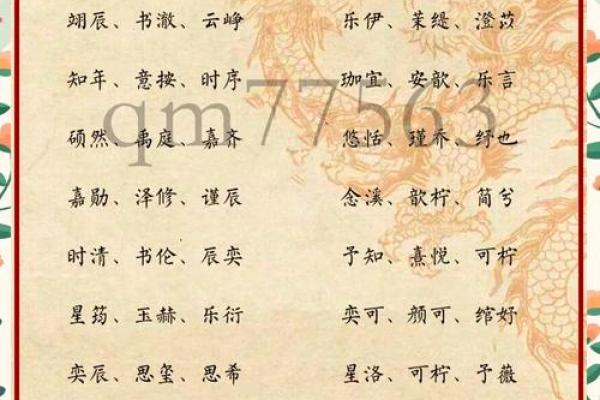 翊辰、书澈、云峥　乐伊、茉缇、澄苡
知年、意按、时序　珈宜、安歆、乐言
qm77563
硕然、禹庭、嘉齐　悠恬、瑾乔、纾也
嘉勋、泽修、谨辰　念溪、歆柠、简兮
时清、书伦、辰奕　予知、熹悦、可柠
星筠、玉赫、乐衍　奕可、颜可、绾妤
奕辰、思玺、思希　星洛、可柠、予薇